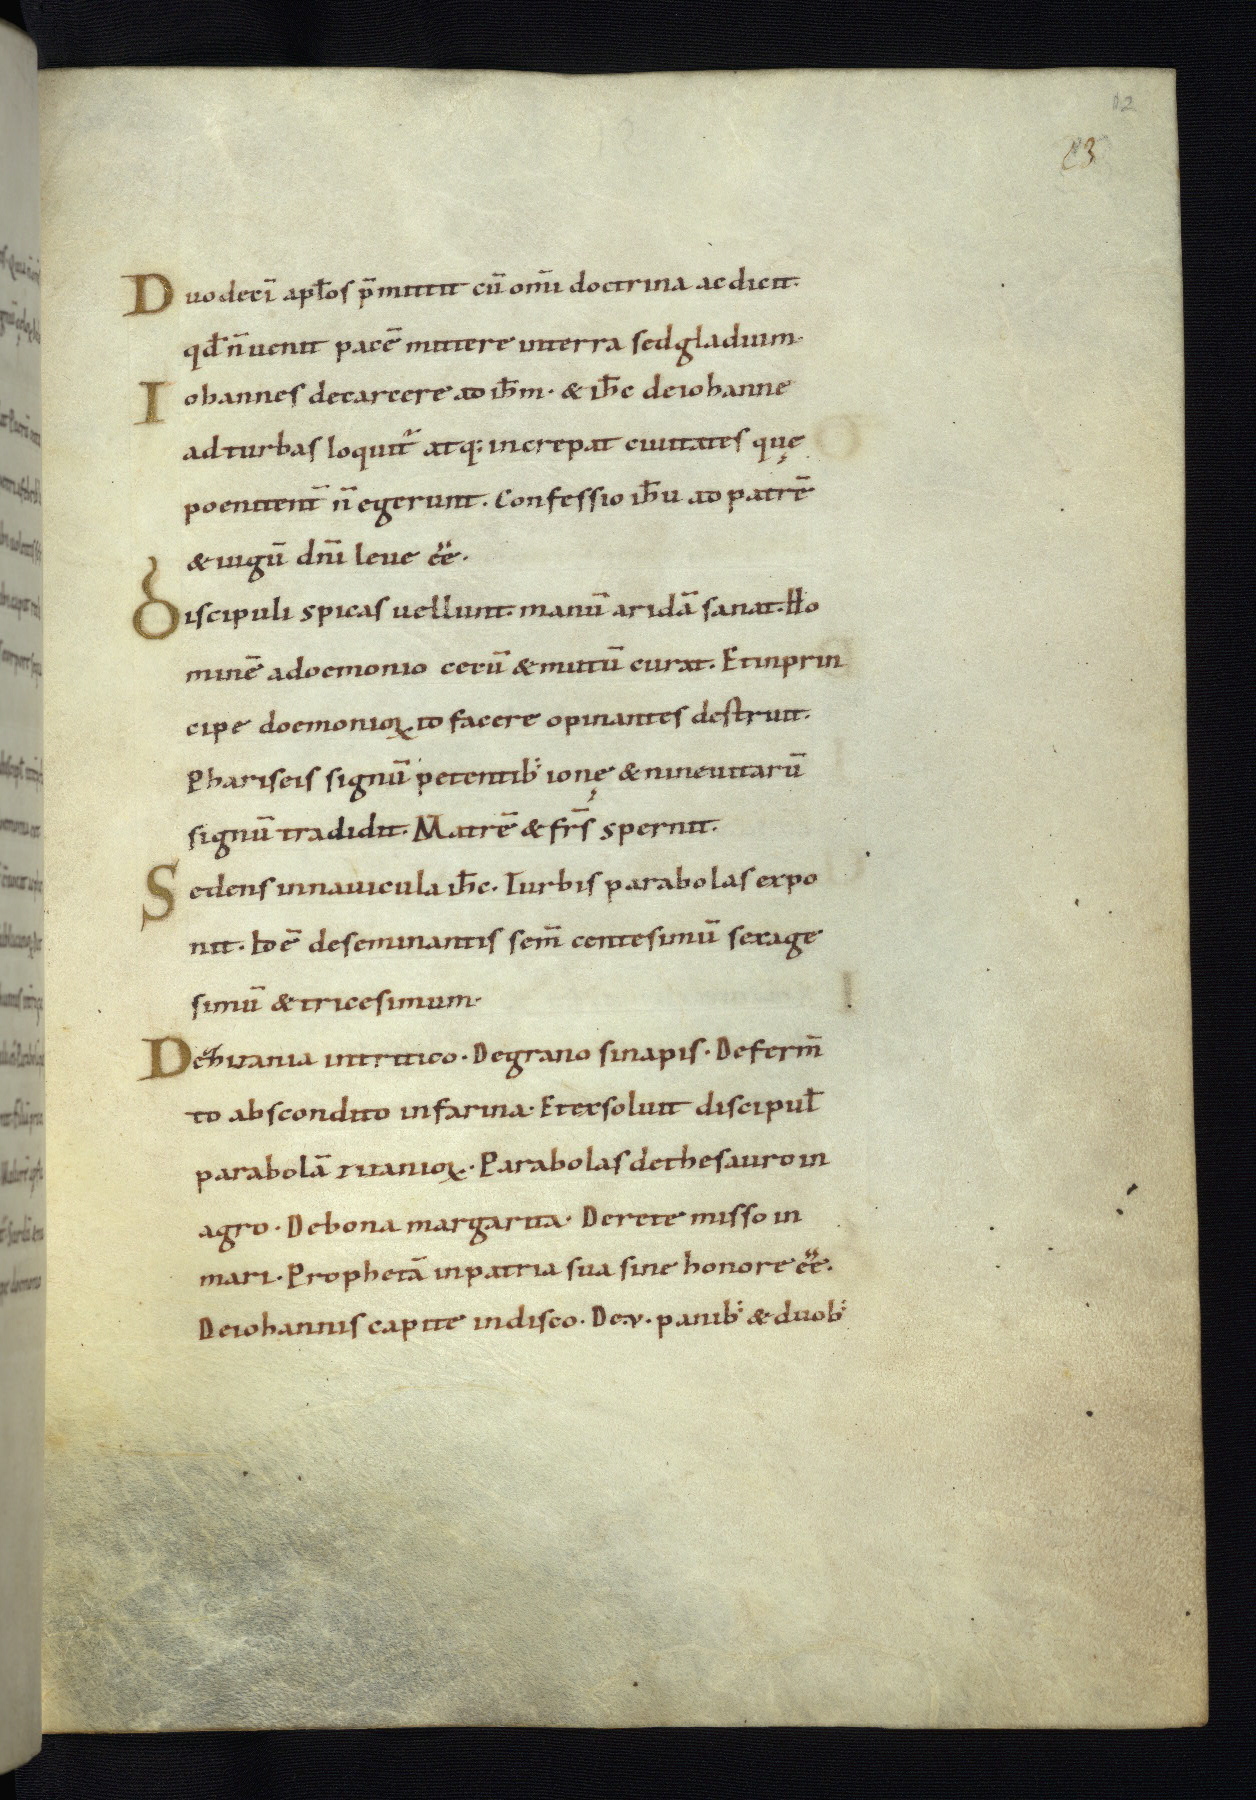 12
23
Duodeci᷑ apl̅os p̅mittit cū om̅i doctrina ac dicit.
qd̅ n̅ uenit pacē mittere in terra sed gladium.
Iohannes de carcere ad ih̅m. & ih̅c de iohanne
ad turbas loquit᷑ atq; increpat ciuitates quę
poenitent̅ n̅ egerunt. Confessio ih̅u ad patrē
& iugū dn̅i leue ēē.
Discipuli spicas uellunt. manū aridā sanat. Ho
minē a doemonio cecū & mutū curat. Et in prin
cipe doemonioꝝ id facere opinantes destruit.
Phariseis signū petentib; ionę & nineuitarū
signū tradidit. Matrē & fr̅s spernit.
Sedens in nauicula ih̅c. Turbis parabolas expo
nit. Id ē de seminantis sem̅ centesimū sexage
simū & tricesimum.
De zizania in tritico. De grano sinapis. De ferm̅
to abscondito in farina. Et exsoluit discipul̅
parabolā zizanioꝝ. Parabolas de thesauro in
agro. De bona margarita. De rete misso in
mari. Prophetā in patria sua sine honore ēē.
De iohannis capite in disco. De .v. panib; & duob;